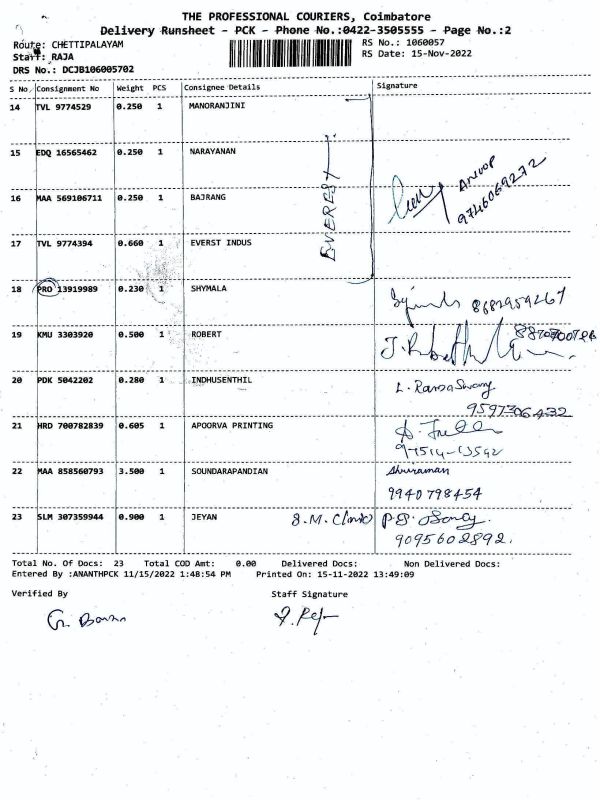 THE PROFESSIONAL COURIERS, Coimbatore
Delivery Runsheet - PCK - Phone No.:0422-3505555 - Page No.:2
Route: CHETTIPALAYAM RS No.: 1060057
Staff: RAJA RS Date: 15-Nov-2022
DRS No.: DCJB106005702
S No Consignment No Weight PCS Consignee Details Signature
14 TVL 9774529 0.250 1 MANORANJINI
15 EDQ 16565462 0.250 1 NARAYANAN
EVEREST
16 MAA 569106711 0.250 1 BAJRANG
ANOOP
9746069272
17 TVL 9774394 0.660 1 EVERST INDUS
18 PRO 13919989 0.230 1 SHYMALA
8682959267
19 KMU 3303920 0.500 1 ROBERT
20 PDK 5042202 0.280 1 INDHUSENTHIL L. RamaSwamy
9597306432
21 HRD 700782839 0.605 1 APOORVA PRINTING
22 MAA 858560793 3.500 1 SOUNDARAPANDIAN
9940798454
23 SLM 307359944 0.900 1 JEYAN S.M. Clinic
9095602892.
Total No. Of Docs: 23 Total COD Amt: 0.00 Delivered Docs: Non Delivered Docs:
Entered By :ANANTHPCK 11/15/2022 1:48:54 PM Printed On: 15-11-2022 13:49:09
Verified By Staff Signature